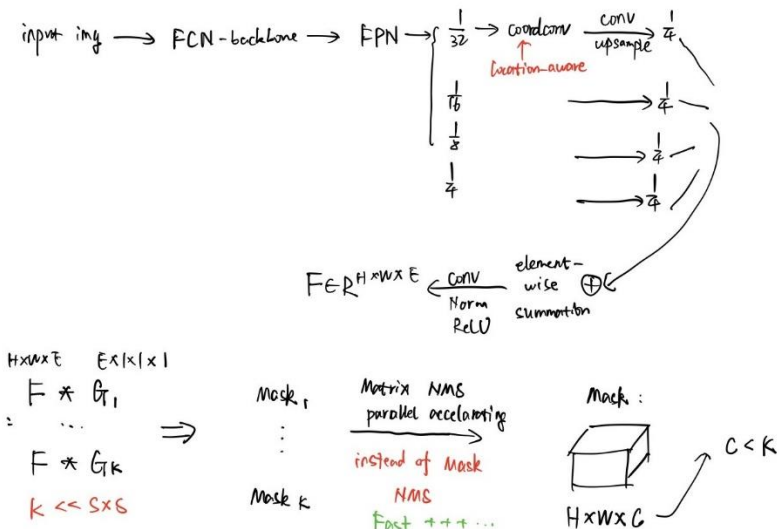 input img → FCN-backbone → FPN → { 1/32 → coordconv conv upsample → 1/4
location-aware
1/16 → 1/4
1/8 → 1/4
1/4 → 1/4
F∈R^H×W×E ← conv Norm ReLU element-wise summation ⊕
H×W×E E×1×1×1
F * G1
: ...
F * GK
K << S×S
⇒
Mask1
⋮
Mask K
Matrix NMS
parallel accelarating
instead of Mask
NMS
Fast +++...
Mask :
H×W×C
C < K